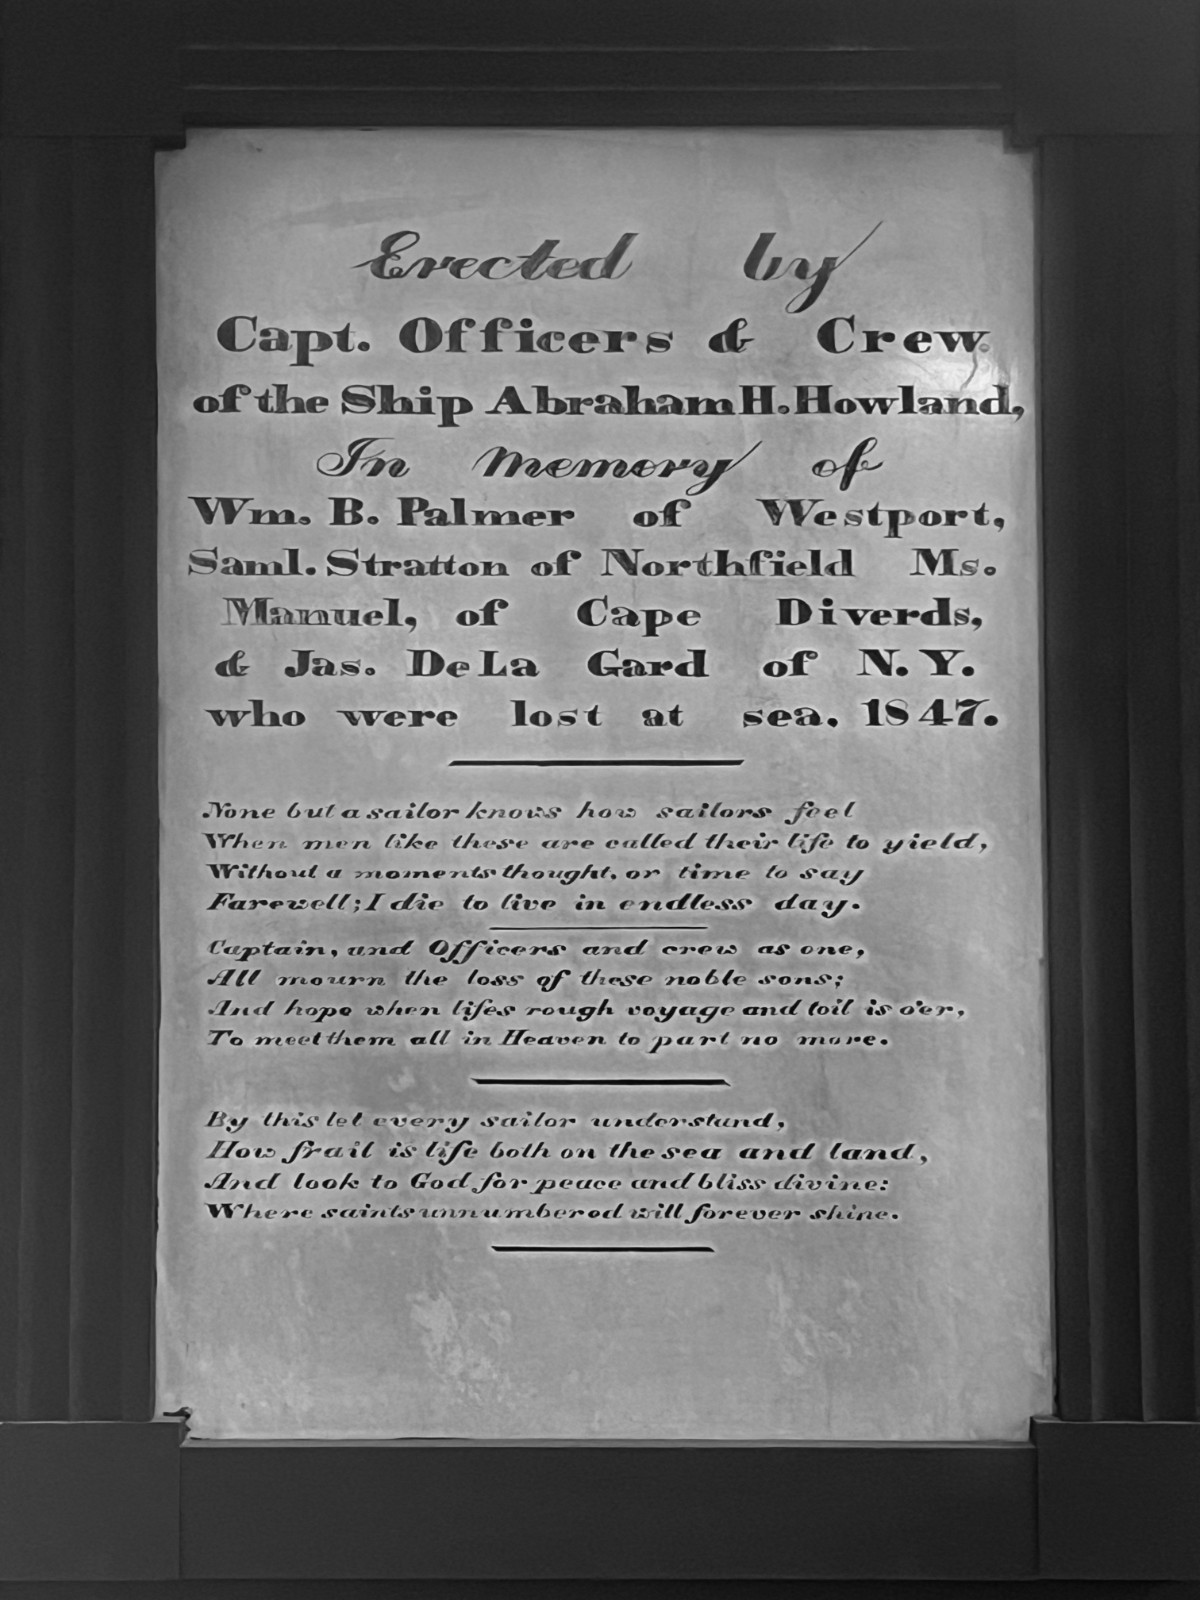 Erected by
Capt. Officers & Crew.
of the Ship Abraham H. Howland,
In memory of
Wm. B. Palmer of Westport,
Saml. Stratton of Northfield Ms.
Manuel, of Cape Diverds,
& Jas. De La Gard of N. Y.
who were lost at sea. 1847.
None but a sailor knows how sailors feel
When men like these are called their life to yield,
Without a moments thought, or time to say
Farewell; I die to live in endless day.
Captain, and Officers and crew as one,
All mourn the loss of these noble sons;
And hope when lifes rough voyage and toil is o'er,
To meet them all in Heaven to part no more.
By this let every sailor understand,
How frail is life both on the sea and land,
And look to God for peace and bliss divine:
Where saints unnumbered will forever shine.